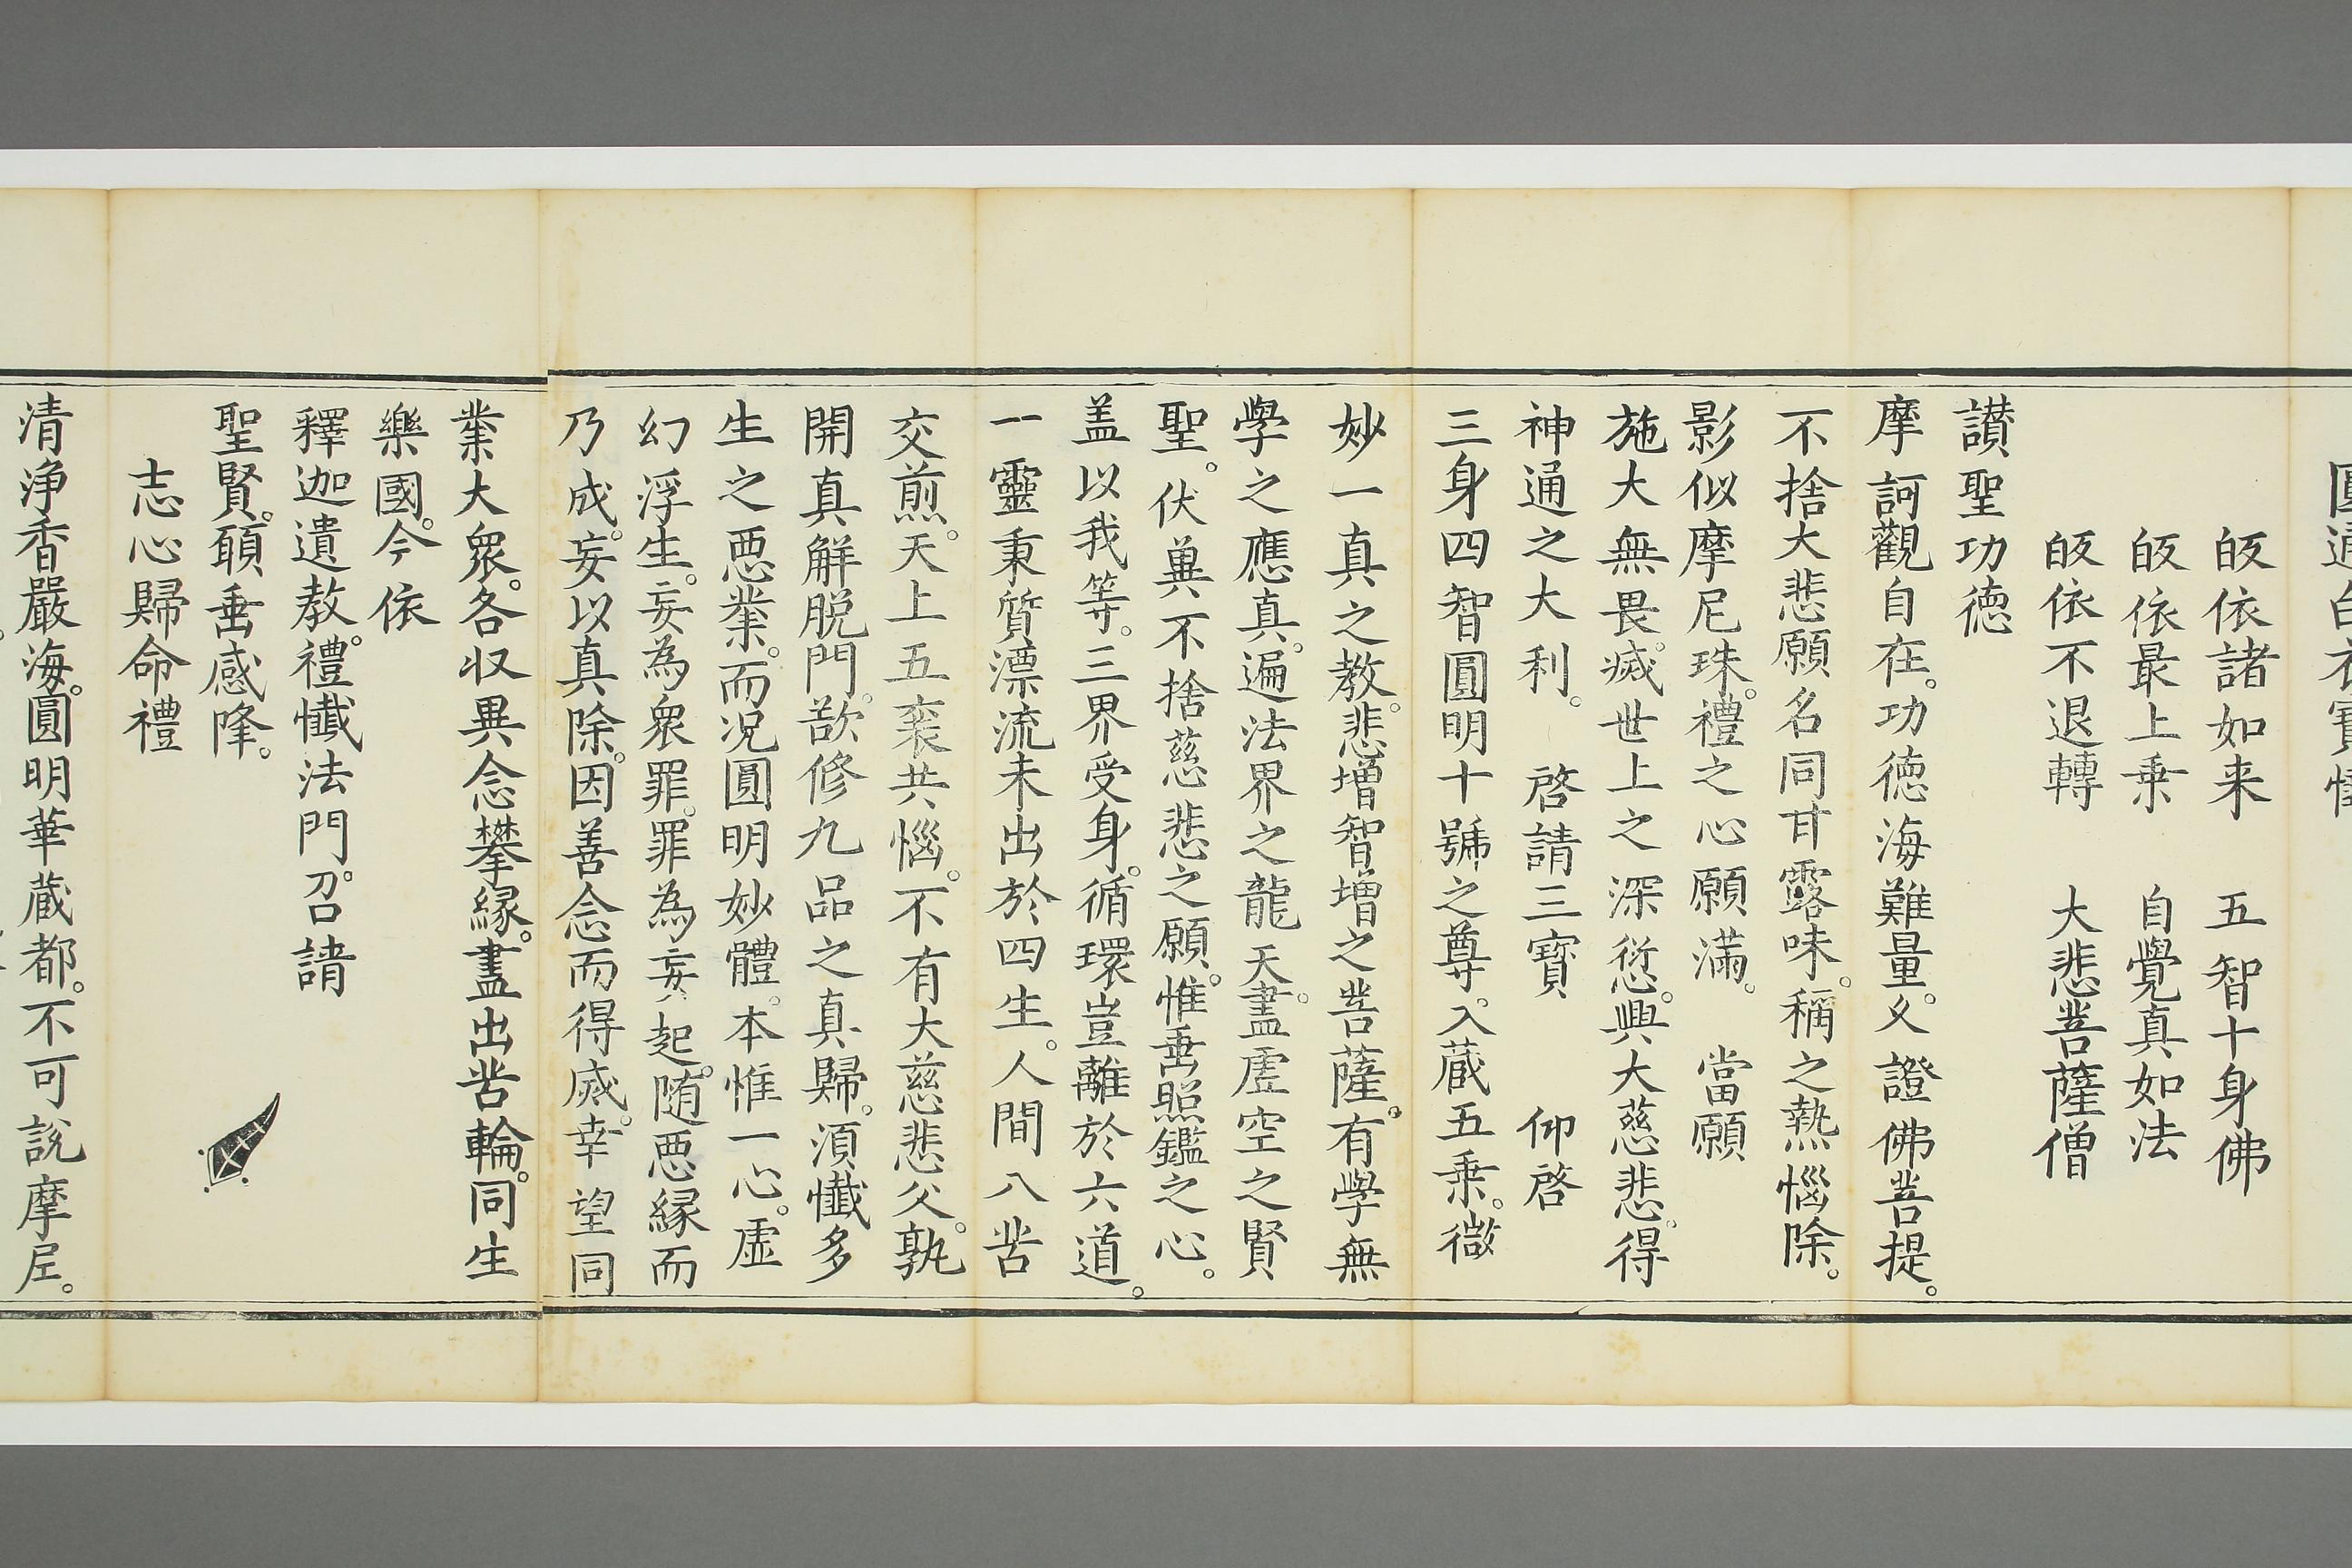 圓通白衣寳懺
皈依諸如来　五智十身佛
皈依最上乗　自覺真如法
皈依不退轉　大悲菩薩僧
讃聖功徳
摩訶觀自在。功徳海難量。久證佛菩提。
不捨大悲願名同甘露味。稱之熱惱除。
影似摩尼珠。禮之心願滿。　當願
施大無畏。滅世上之深愆。興大慈悲。得
神通之大利。　啓請三寳　仰啓
三身四智圓明十號之尊。入蔵五乗。微
妙一真之教。悲增智增之菩薩。有學無
學之應真。遍法界之龍天。盡虚空之賢
聖。伏兾不捨慈悲之願。惟垂照鑑之心。
盖以我等。三界受身。循環豈離於六道。
一靈秉質漂流未出於四生。人間八苦
交煎。天上五衰共惱。不有大慈悲父。孰
開真解脱門。欲修九品之真歸。須懺多
生之悪業。而况圓明妙體。本惟一心。虚
幻浮生。妄為衆罪。罪為妄起。随悪縁而
乃成。妄以真除。因善念而得滅。幸望同
業大衆。各収異念攀縁。盡出苦輪。同生
樂國。今依
釋迦遺教。禮懺法門。召請
聖賢。願垂感降。
志心歸命禮
清浄香嚴海。圓明華蔵都。不可說摩尼。